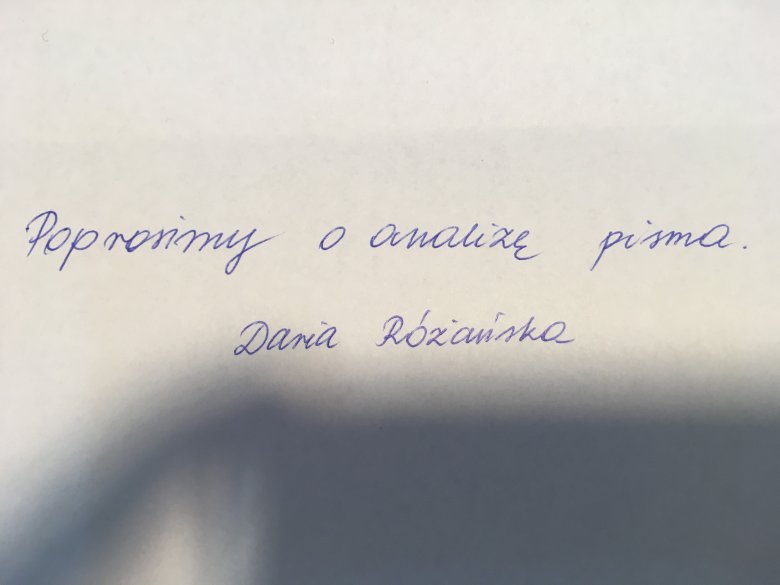 Poprosimy o analizę pisma.
Daria Różańska